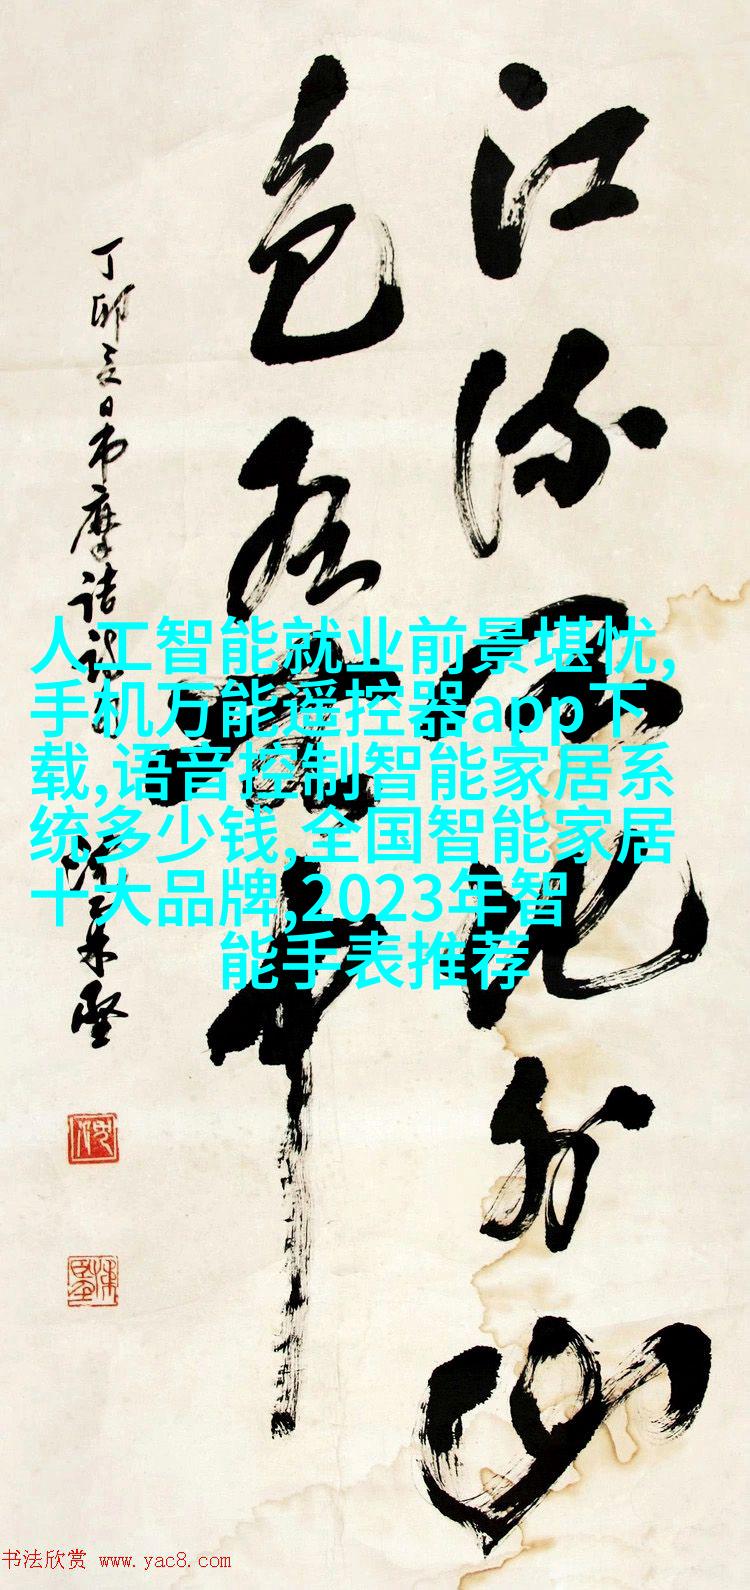 江流天地外山
色有无中
丁卯夏日书摩诘诗
人工智能就业前景堪忧,
手机万能遥控器app下
载,语音控制智能家居系
统多少钱,全国智能家居
十大品牌,2023年智
能手表推荐
书法欣赏 www.yac8.com